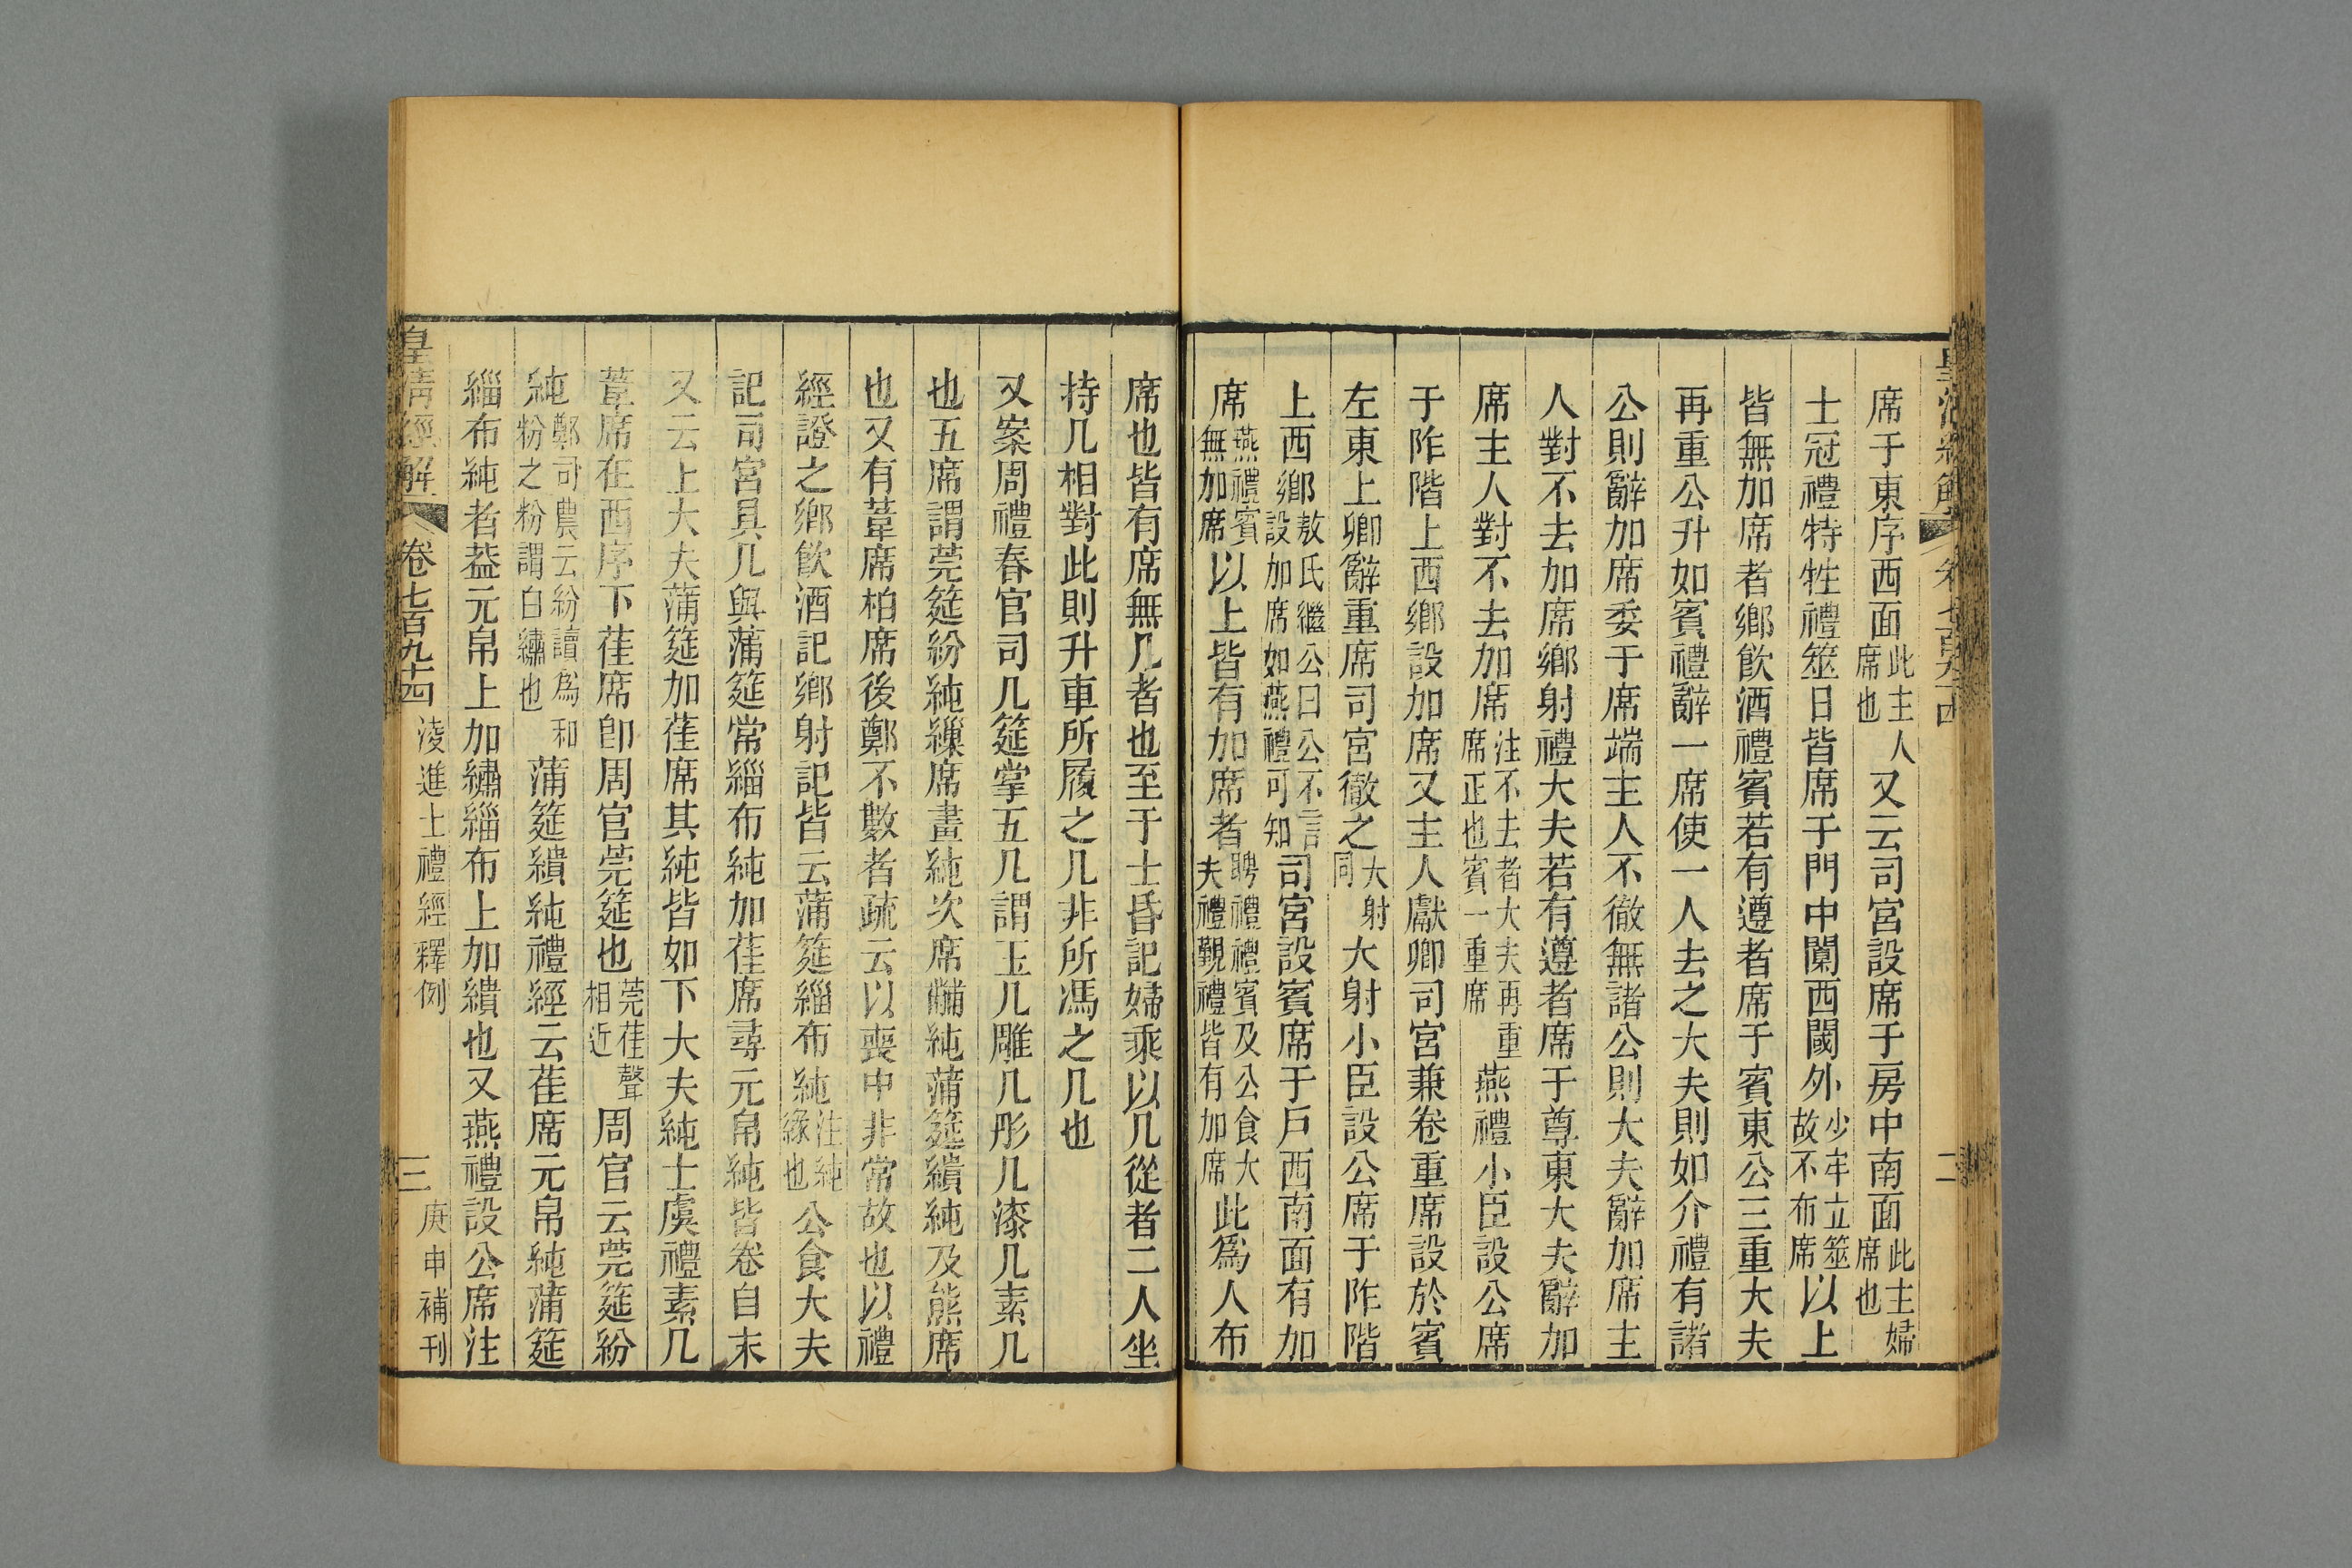 席于東序西面此主人席也又云司宮設席于房中南面此主婦席也
士冠禮特牲禮筮日皆席于門中闑西閾外少牢立筮故不布席以上
皆無加席者鄉飲酒禮賓若有遵者席于賓東公三重大夫
再重公升如賓禮辭一席使一人去之大夫則如介禮有諸
公則辭加席委于席端主人不徹無諸公則大夫辭加席主
人對不去加席鄉射禮大夫若有遵者席于尊東大夫辭加
席主人對不去加席注不去者大夫再重席正也賓一重席燕禮小臣設公席
于阼階上西鄉設加席又主人獻卿司宮兼卷重席設於賓
左東上卿辭重席司宮徹之大射同大射小臣設公席于阼階
上西鄉敖氏繼公曰公不言設加席如燕禮可知司宮設賓席于戶西南面有加
席燕禮賓無加席以上皆有加席者聘禮禮賓及公食大夫禮覲禮皆有加席此爲人布
席也皆有席無几者也至于士昏記婦乘以几從者二人坐
持几相對此則升車所履之几非所馮之几也
又案周禮春官司几筵掌五几謂玉几雕几彤几漆几素几
也五席謂莞筵紛純繅席畫純次席黼純蒲筵繢純及熊席
也又有葦席柏席後鄭不數者疏云以喪中非常故也以禮
經證之鄉飲酒記鄉射記皆云蒲筵緇布純注純緣也公食大夫
記司宮具几與蒲筵常緇布純加萑席尋元帛純皆卷自末
又云上大夫蒲筵加萑席其純皆如下大夫純士虞禮素几
葦席在西序下萑席卽周官莞筵也莞萑聲相近周官云莞筵紛
純鄭司農云紛讀爲和粉之粉謂白繡也蒲筵繢純禮經云萑席元帛純蒲筵
緇布純者葢元帛上加繡緇布上加繢也又燕禮設公席注
皇清經解 卷七百九十四 淩進士禮經釋例 三 庚申補刊